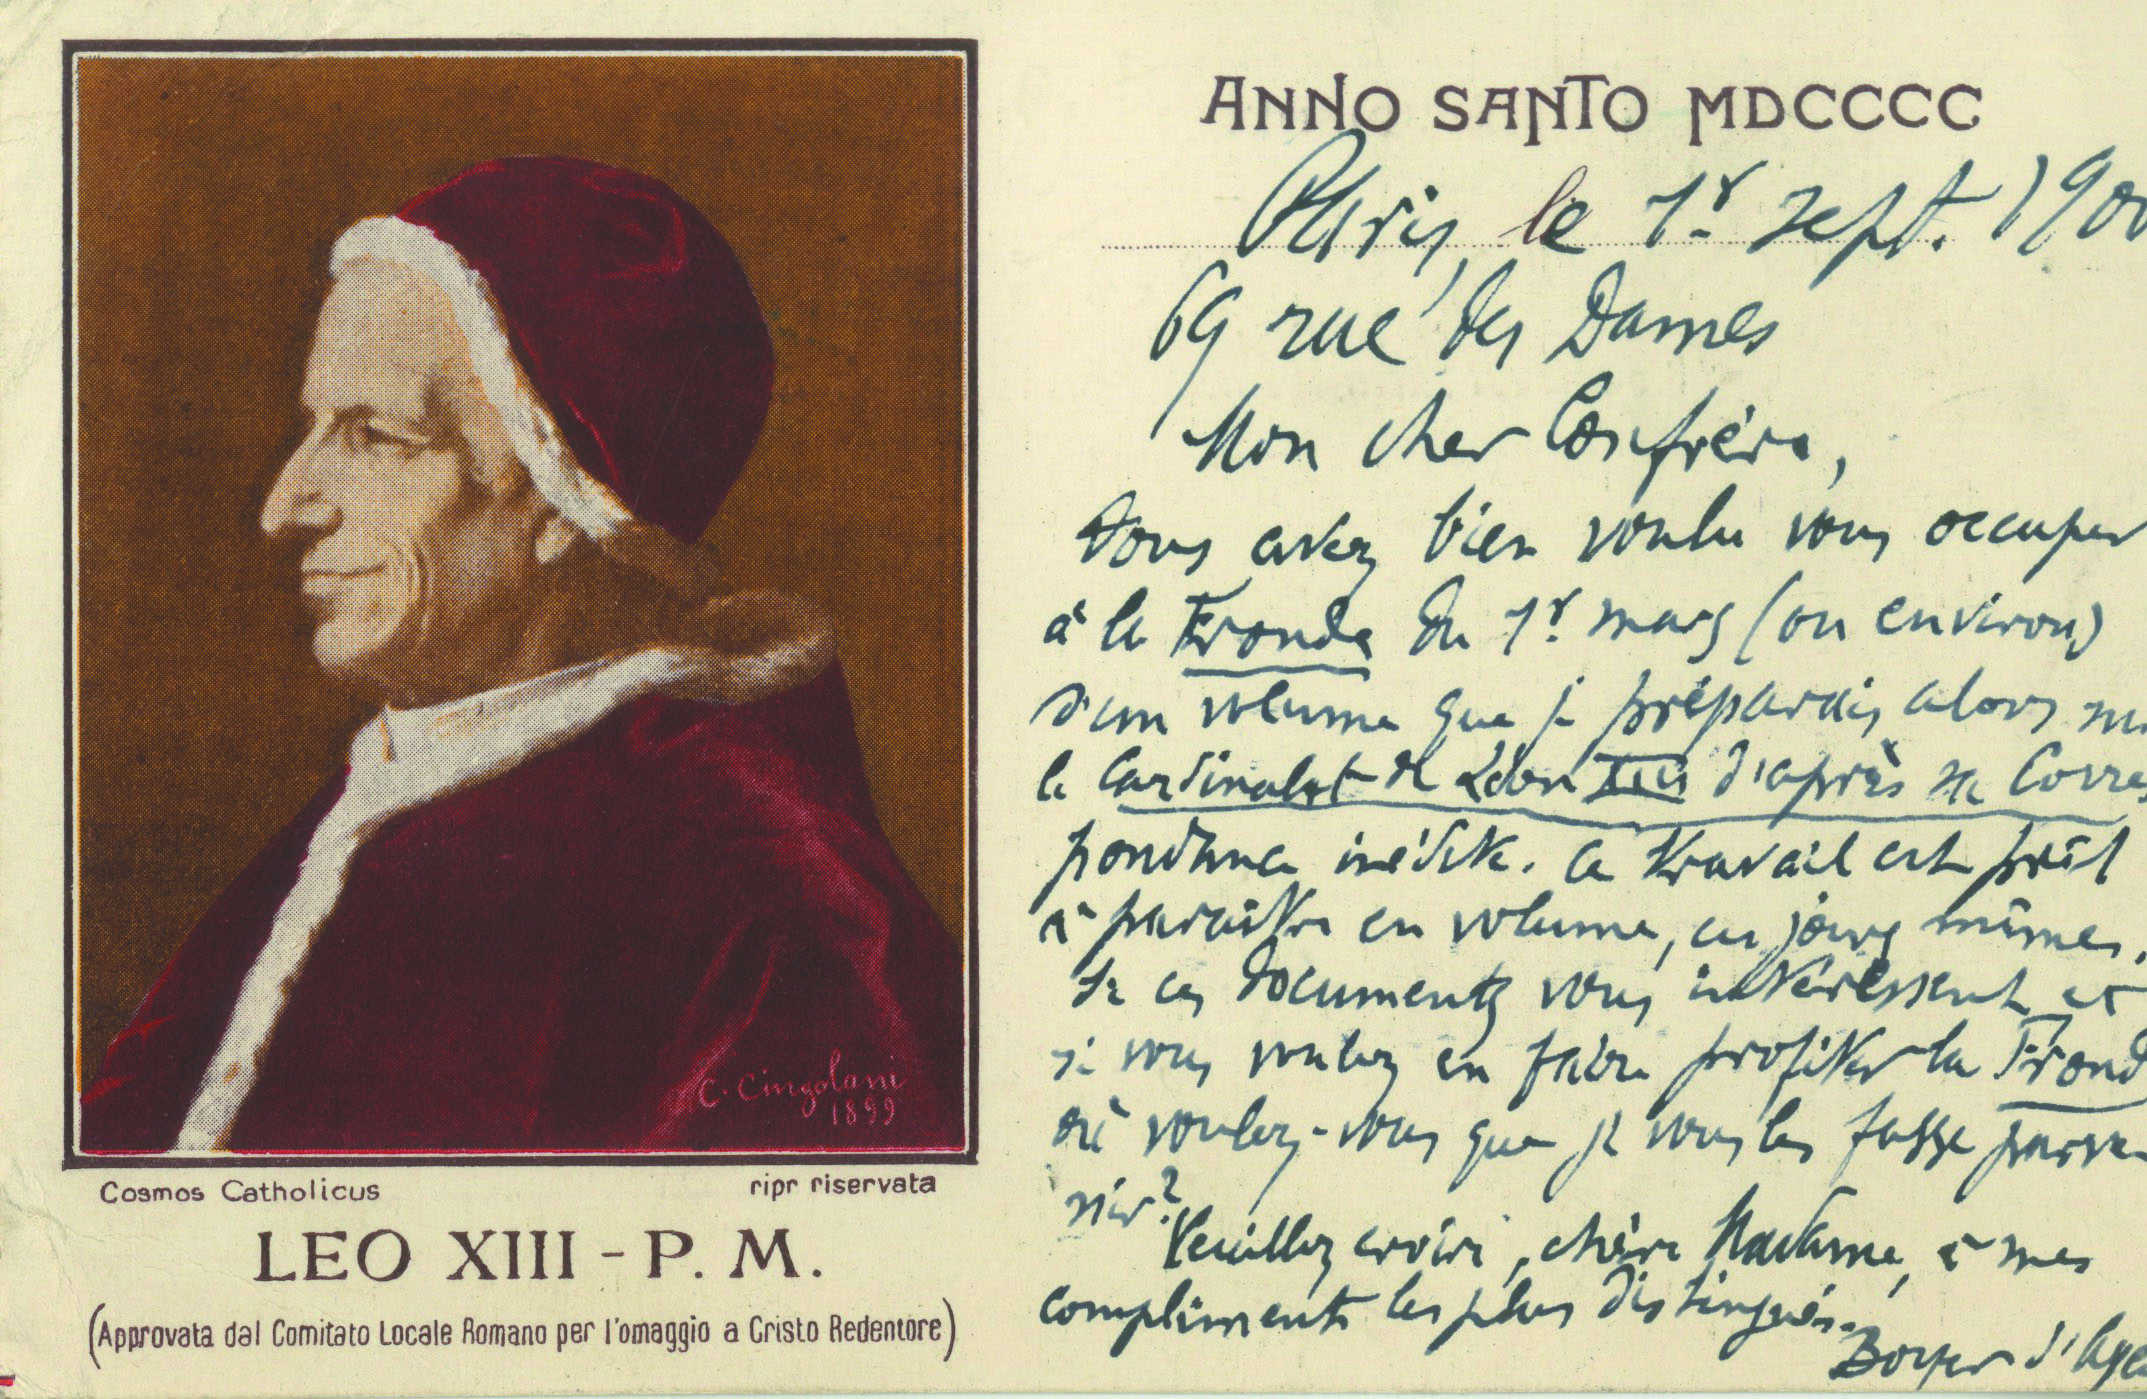 ANNO SANTO MDCCCC
Paris, le 1r sept. 1900
69 rue des Dames
Mon cher Confrère,
Vous avez bien voulu vous occuper
à la Fronde du 1r mars (ou environ)
d'un volume que je préparais alors sur
le Cardinalat de Léon XIII d'après sa Corres
pondance inédite. Ce travail est prêt
à paraître en volume, ces jours mêmes.
Si ces documents vous intéressent et
si vous voulez en faire profiter la Frond
où voulez-vous que je vous les fasse parve
nir?
Veuillez croire, chère Madame, à mes
compliments les plus distingués.
Boyer d'Agen
C. Cingolani
1899
Cosmos Catholicus
ripr riservata
LEO XIII - P. M.
(Approvata dal Comitato Locale Romano per l'omaggio a Cristo Redentore)